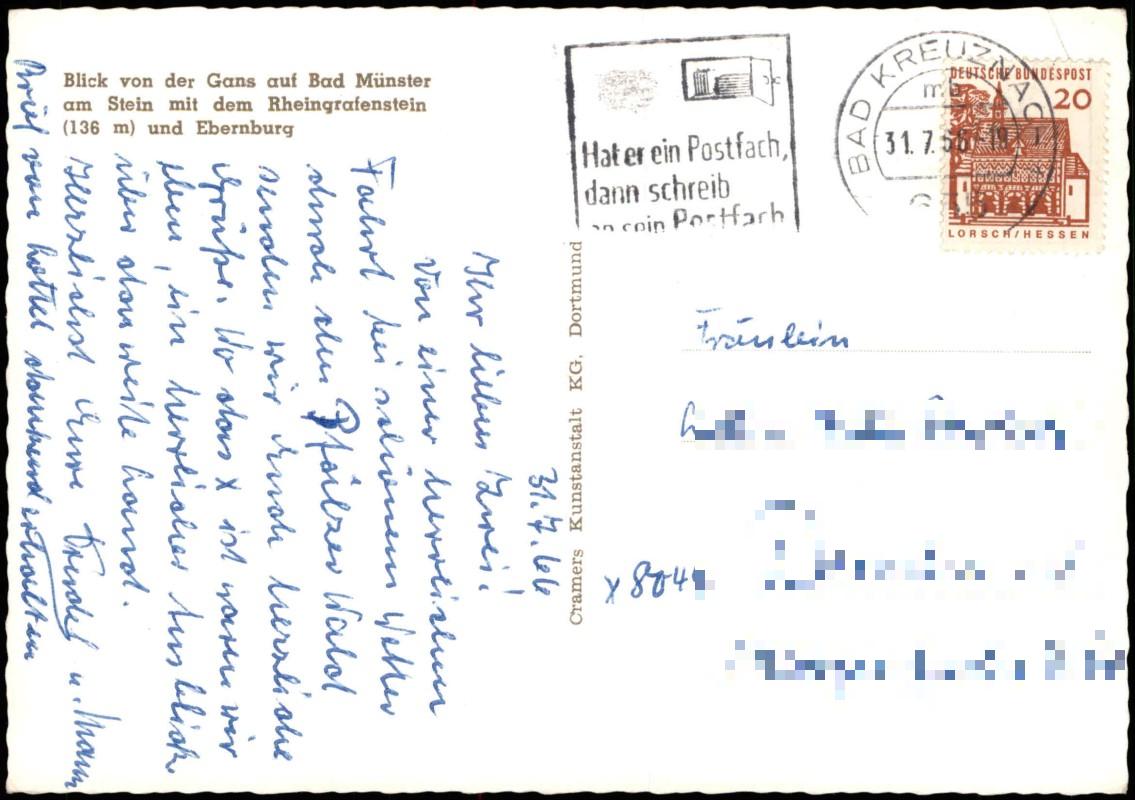 Blick von der Gans auf Bad Münster
am Stein mit dem Rheingrafenstein
(136 m) und Ebernburg
31.7.66
Ihr lieben Zwei!
Von einer herrlichen
Fahrt bei schönem Wetter
durch den Pfälzer Wald
senden wir Euch herzliche
Grüße. Wo das x ist waren wir
oben, ein herrlicher Ausblick
über das weite Land.
Herzlichst Eure u. Mann
Brief von dankend erhalten
Cramers Kunstanstalt KG. Dortmund
Hat er ein Postfach,
dann schreib
an sein Postfach
BAD KREUZNACH
31.7.66-19
DEUTSCHE BUNDESPOST
20
LORSCH/HESSEN
Fräulein
x 804